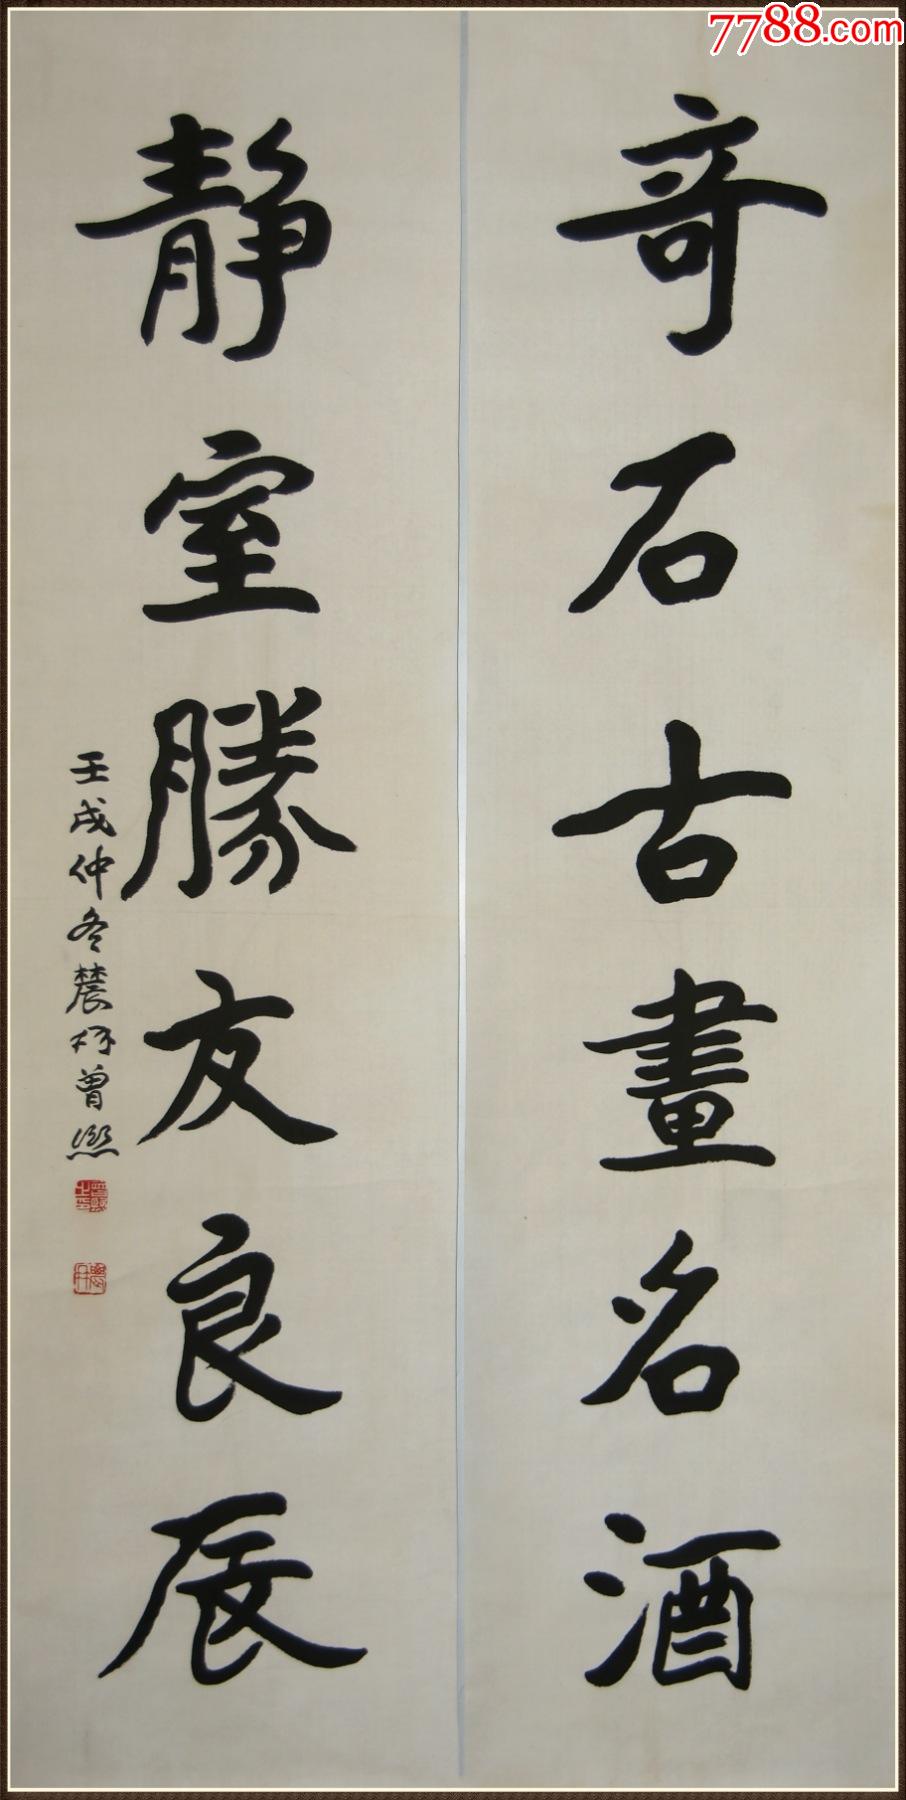 7788.com
奇石古畫名酒
静室勝友良辰
壬戌仲冬農髯曾熙